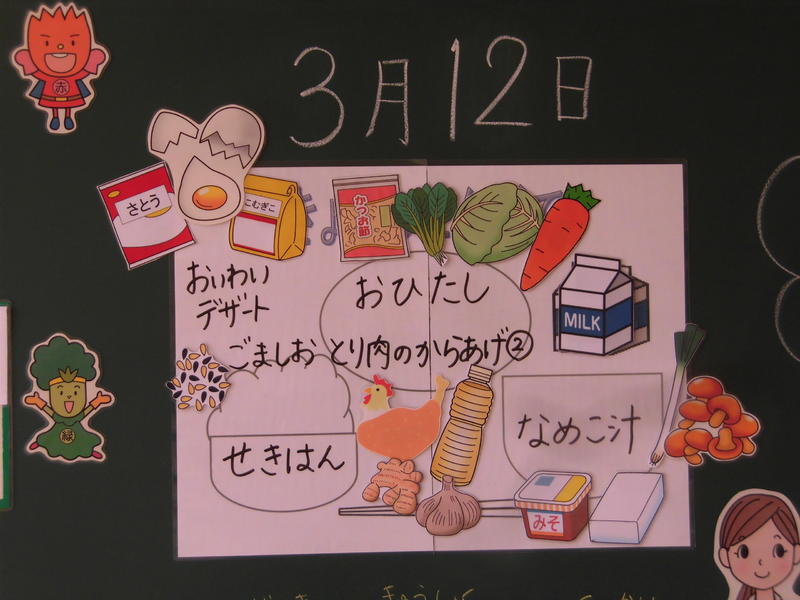 3月12日
赤
さとう
こむぎこ
かつお節
おいわい
デザート
おひたし
MILK
ごましお
とり肉のからあげ②
せきはん
なめこ汁
みそ
緑